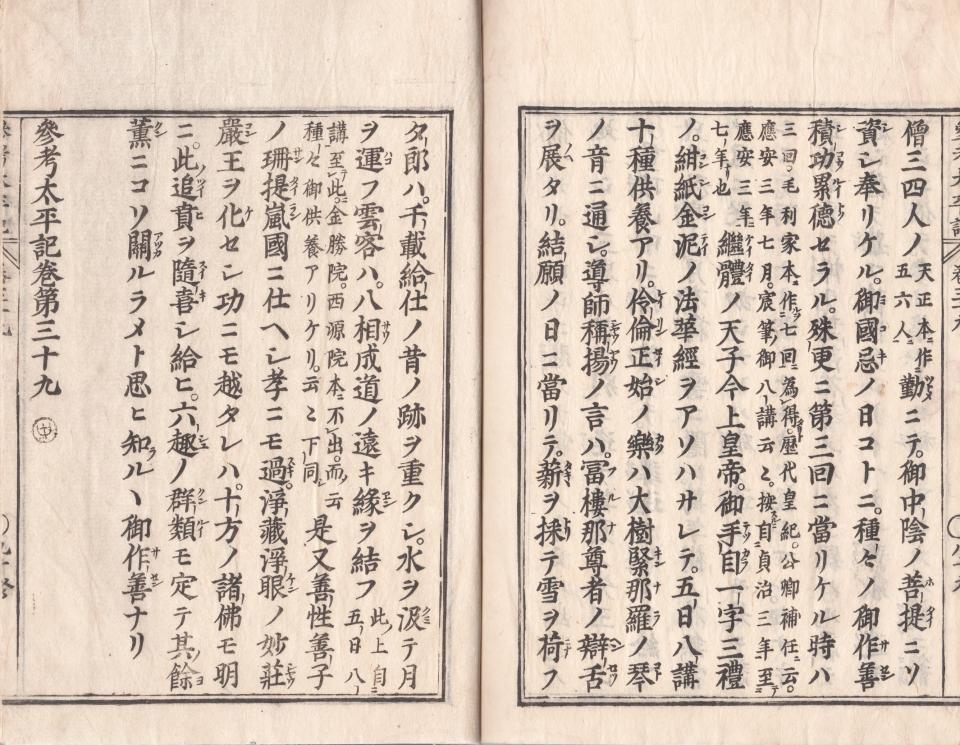 僧三四人ノ天正本作五六人勤ニテ。御中陰ノ菩提ニリ
資シ奉リケル。御國忌ノ日コトニ。種々ノ御作善
積功累德セラル。殊更ニ第三回ニ當リケル時ハ
三回。毛利家本作七回為得。歷代皇紀。公卿補任云。應安三年七月。宸筆御八講云々。按自貞治三年至應安三年七年也
繼體ノ天子今上皇帝。御手自一字三禮
ノ。紺紙金泥ノ法華經ヲアソハサレテ。五日八講
十種供養アリ。伶倫正始ノ樂ハ大樹緊那羅ノ琴
ノ音ニ通シ。導師稱揚ノ言ハ。冨樓那尊者ノ辯舌
ヲ展タリ。結願ノ日ニ當リテ。薪ヲ採テ雪ヲ荷フ
夕郎ハ。千載給仕ノ昔ノ跡ヲ重クシ。水ヲ汲テ月
ヲ運フ雲客ハ。八相成道ノ遠キ緣ヲ結フ此上自五日八
講至此。金勝院。西源院本不出。而云種々御供養アリケリ。云々下同。是又善性善子
ノ珊提嵐國ニ仕ヘシ孝ニモ過。淨藏淨眼ノ妙莊
嚴王ヲ化セシ功ニモ越タレハ。十方ノ諸佛モ明
ニ。此追賁ヲ隨喜シ給ヒ。六趣ノ群類モ定テ其餘
薰ニコソ關ルラメト思ヒ知ルヽ御作善ナリ
參考太平記卷第三十九